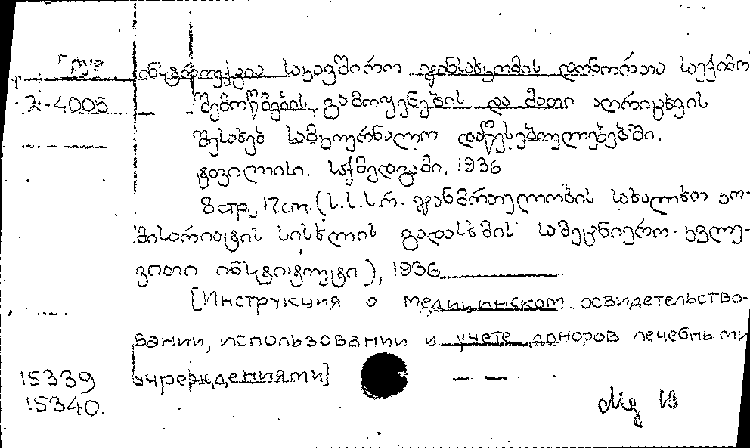 Груз
2-4008
ინსტრუქცია საკავშირო ჯანსახკომის დონორთა საექიმო
შემოწმების, გამოყენების და მათი აღრიცხვის
შესახებ სამკურნალო დაწესებულებებში.
ტფილისი. საქმედგამი, 1936
8 стр., 17 cm. (ს.ს.ს.რ. ჯანმრთელობის სახალხო კო-
მისარიატის სისხლის გადასხმის სამეცნიერო-კვლე-
ვითი ინსტიტუტი), 1936
[Инструкция о медицинском освидетельство-
вании, использовании и учете доноров лечебными
учреждениями]
15339
15340.